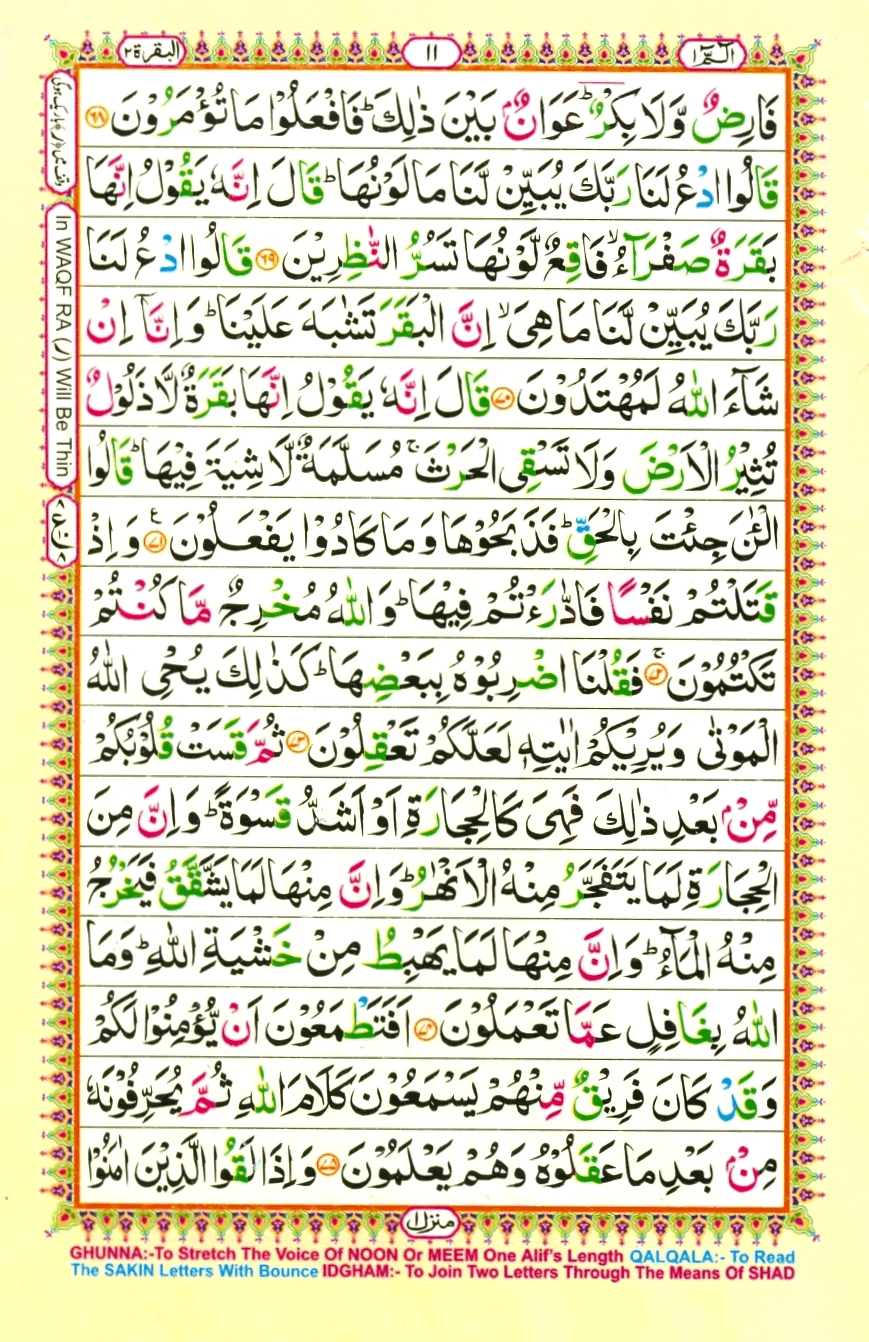 الٓمّٓ ١
١١
البقرة ٢
فَارِضٌ وَّلَا بِكْرٌ ؕ عَوَانٌۢ بَیْنَ ذٰلِكَ ؕ فَافْعَلُوْا مَا تُؤْمَرُوْنَ ﴿۶۸﴾
قَالُوا ادْعُ لَنَا رَبَّكَ یُبَیِّنْ لَّنَا مَا لَوْنُهَا ؕ قَالَ اِنَّهٗ یَقُوْلُ اِنَّهَا
بَقَرَةٌ صَفْرَآءُ ۙ فَاقِعٌ لَّوْنُهَا تَسُرُّ النّٰظِرِیْنَ ﴿۶۹﴾ قَالُوا ادْعُ لَنَا
رَبَّكَ یُبَیِّنْ لَّنَا مَا هِیَ ۙ اِنَّ الْبَقَرَ تَشٰبَهَ عَلَیْنَا ؕ وَاِنَّاۤ اِنْ
شَآءَ اللّٰهُ لَمُهْتَدُوْنَ ﴿۷۰﴾ قَالَ اِنَّهٗ یَقُوْلُ اِنَّهَا بَقَرَةٌ لَّا ذَلُوْلٌ
تُثِیْرُ الْاَرْضَ وَلَا تَسْقِی الْحَرْثَ ۚ مُسَلَّمَةٌ لَّا شِیَةَ فِیْهَا ؕ قَالُوا
الْـٰٔنَ جِئْتَ بِالْحَقِّ ؕ فَذَبَحُوْهَا وَمَا كَادُوْا یَفْعَلُوْنَ ﴿۷۱﴾ ع وَاِذْ
قَتَلْتُمْ نَفْسًا فَادّٰرَءْتُمْ فِیْهَا ؕ وَاللّٰهُ مُخْرِجٌ مَّا كُنْتُمْ
تَكْتُمُوْنَ ﴿۷۲﴾ ۚ فَقُلْنَا اضْرِبُوْهُ بِبَعْضِهَا ؕ كَذٰلِكَ یُحْیِ اللّٰهُ
الْمَوْتٰی وَیُرِیْكُمْ اٰیٰتِهٖ لَعَلَّكُمْ تَعْقِلُوْنَ ﴿۷۳﴾ ثُمَّ قَسَتْ قُلُوْبُكُمْ
مِّنْۢ بَعْدِ ذٰلِكَ فَهِیَ كَالْحِجَارَةِ اَوْ اَشَدُّ قَسْوَةً ؕ وَاِنَّ مِنَ
الْحِجَارَةِ لَمَا یَتَفَجَّرُ مِنْهُ الْاَنْهٰرُ ؕ وَاِنَّ مِنْهَا لَمَا یَشَّقَّقُ فَیَخْرُجُ
مِنْهُ الْمَآءُ ؕ وَاِنَّ مِنْهَا لَمَا یَهْبِطُ مِنْ خَشْیَةِ اللّٰهِ ؕ وَمَا
اللّٰهُ بِغَافِلٍ عَمَّا تَعْمَلُوْنَ ﴿۷۴﴾ اَفَتَطْمَعُوْنَ اَنْ یُّؤْمِنُوْا لَكُمْ
وَقَدْ كَانَ فَرِیْقٌ مِّنْهُمْ یَسْمَعُوْنَ كَلَامَ اللّٰهِ ثُمَّ یُحَرِّفُوْنَهٗ
مِنْۢ بَعْدِ مَا عَقَلُوْهُ وَهُمْ یَعْلَمُوْنَ ﴿۷۵﴾ وَاِذَا لَقُوا الَّذِیْنَ اٰمَنُوْا
In WAQF RA (ر) Will Be Thin
منزل ١
GHUNNA:-To Stretch The Voice Of NOON Or MEEM One Alif's Length QALQALA:- To Read
The SAKIN Letters With Bounce IDGHAM:- To Join Two Letters Through The Means Of SHAD